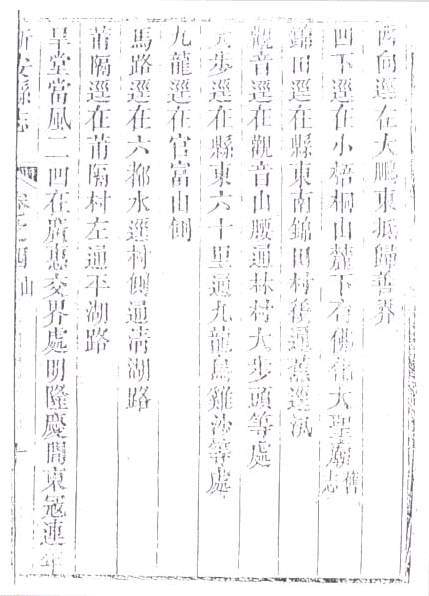 西向逕在大鵬東抵歸善界
凹下逕在小梧桐山麓下有佛大聖廟舊志
錦田逕在縣東南錦田村後通蕉逕汛
觀音逕在觀音山腰通林村大步頭等處
大步逕在縣東六十里通九龍烏雞沙等處
九龍逕在官富山側
馬路逕在六都水逕村側通清湖路
莆隔逕在莆隔村左通平湖路
旱堂當風二凹在廣惠交界處明隆慶間東寇連年
新安縣志 卷之四 山